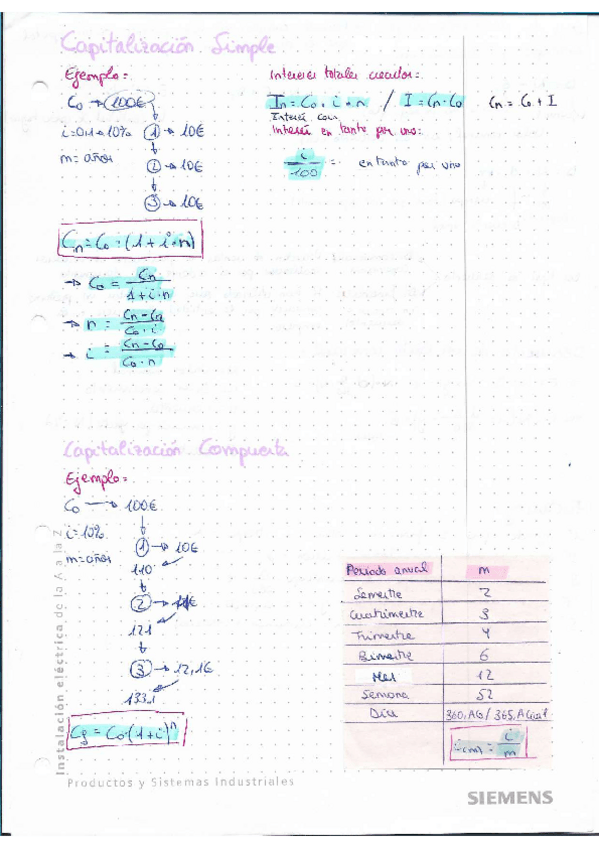 Capitalización Simple
Ejemplo:
Co → 100€
i=0,1 → 10%
m= años
1 → 10€
2 → 10€
3 → 10€
Cn = Co · (1 + i · n)
→ Co = Cn / 1 + i · n
→ n = Cn - Cn / Co · i
→ i = Cn - Co / Co · n
Intereses totales
In = Co · i · n / I = Cn - Co Cn = Co + I
Interés en tanto por uno:
i / 100 = en tanto por uno
Capitalización Compuesta
Ejemplo:
Co → 100€
i=10%
m= años
1 → 10€
110
2 →
121
3 → 12,1€
133,1
= Co · (1 + i)^n
Periodo anual m
Semestre 2
Cuatrimestre 3
Trimestre 4
Bimestre 6
Mes 12
Semana 52
Día 360, / 365,
i(m) = i / m
Instalación eléctrica de la A a la Z
Productos y Sistemas Industriales
SIEMENS